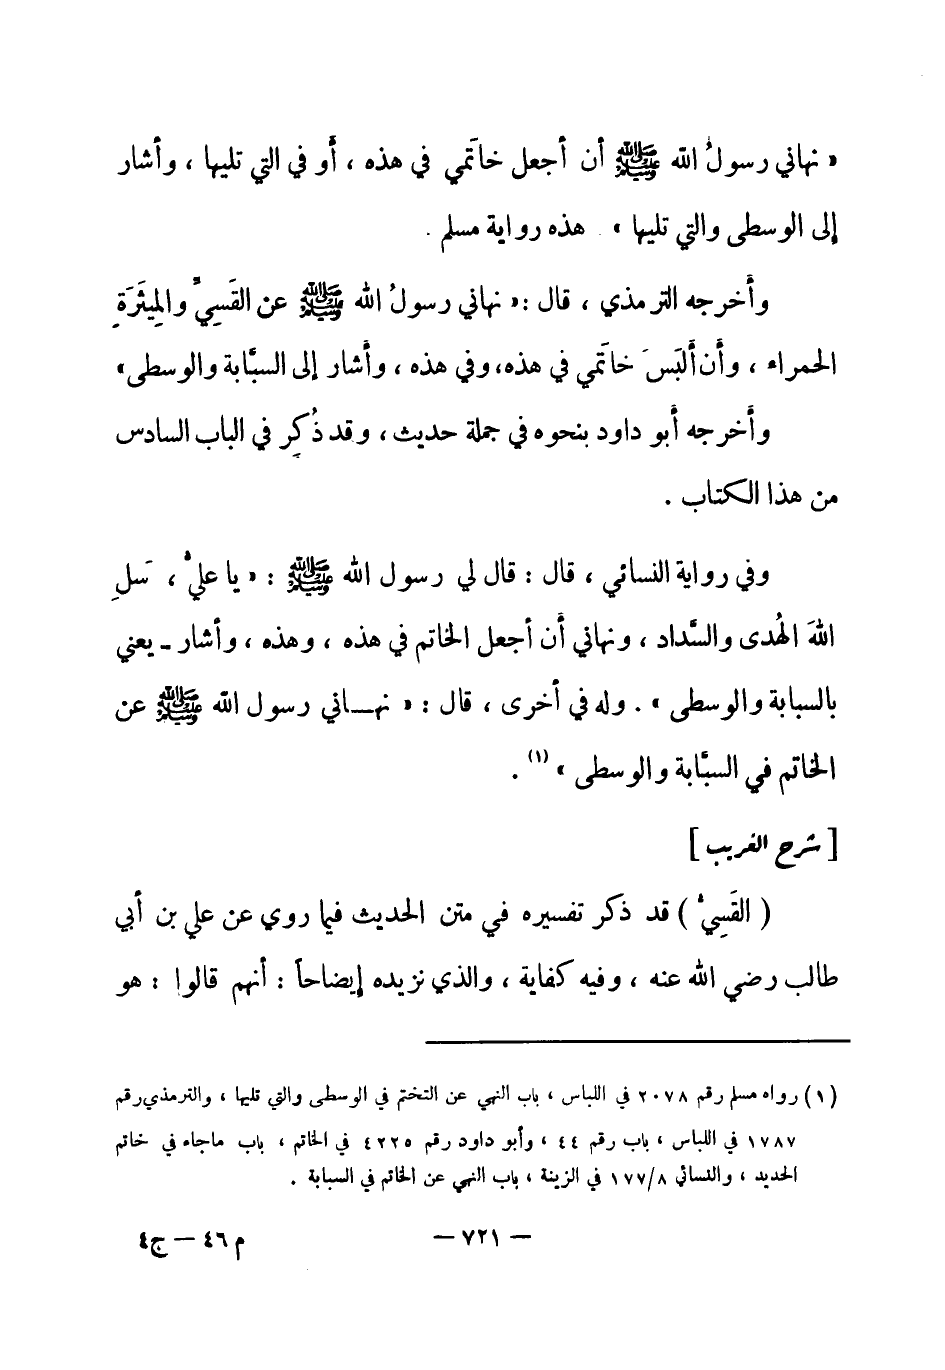 « نهاني رسولُ الله ﷺ أن أجعل خاتَمي في هذه ، أَو في التي تليها ، وأشار
إلى الوسطى والتي تليها » . هذه رواية مسلم .
وأَخرجه الترمذي ، قال : « نهاني رسولُ الله ﷺ عن القَسِيِّ والمِيثَرَةِ
الحمراء ، وأَن أَلبَسَ خاتَمي في هذه، وفي هذه ، وأَشار إلى السبَّابة والوسطى»
وأَخرجه أَبو داود بنحوه في جملة حديث ، وقد ذُكِر في الباب السادس
من هذا الكتاب .
وفي رواية النسائي ، قال : قال لي رسول الله ﷺ : « يا عليُّ ، سَلِ
اللهَ الهُدى والسَّداد ، ونهاني أَن أجعل الخاتم في هذه ، وهذه ، وأشار ـ يعني
بالسبابة والوسطى » . وله في أخرى ، قال : « نهـــاني رسول الله ﷺ عن
الخاتم في السبَّابة والوسطى » (١) .
[ شرح الغريب ]
( القَسِيُّ ) قد ذكر تفسيره في متن الحديث فيما روي عن علي بن أبي
طالب رضي الله عنه ، وفيه كفاية ، والذي نزيده إيضاحاً : أنهم قالوا : هو
(١) رواه مسلم رقم ٢٠٧٨ في اللباس ، باب النهي عن التختم في الوسطى والتي تليها ، والترمذي رقم
١٧٨٧ في اللباس ، باب رقم ٤٤ ، وأبو داود رقم ٤٢٢٥ في الخاتم ، باب ماجاء في خاتم
الحديد ، والنسائي ١٧٧/٨ في الزينة ، باب النهي عن الخاتم في السبابة .
— ٧٢١ — م ٤٦ — ج٤